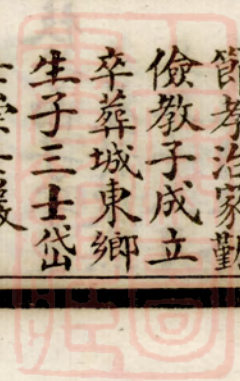 節孝治家勤
儉教子成立
卒葬城東鄉
生子三士岱